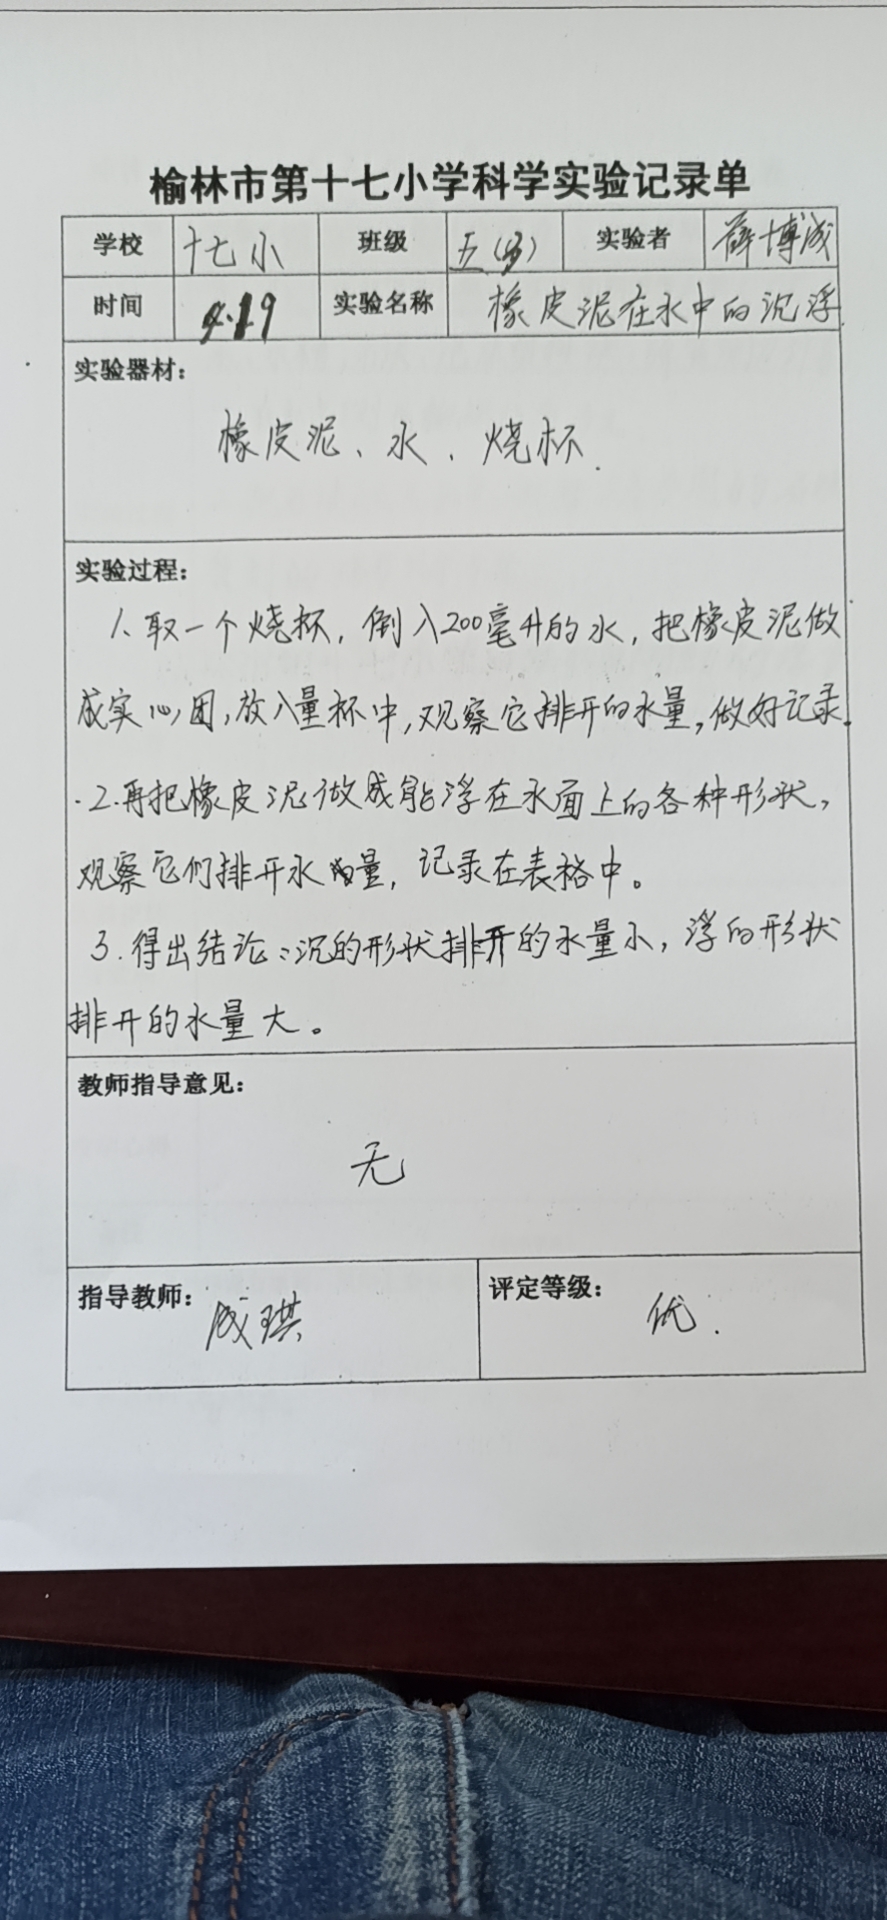 榆林市第十七小学科学实验记录单
学校 十七小 班级 五() 实验者 薛博成
时间 4.19 实验名称 橡皮泥在水中的沉浮
实验器材:
橡皮泥、水、烧杯.
实验过程:
1、取一个烧杯,倒入200毫升的水,把橡皮泥做
成实心团,放入量杯中,观察它排开的水量,做好记录.
2.再把橡皮泥做成能浮在水面上的各种形状,
观察它们排开水的量,记录在表格中。
3.得出结论:沉的形状排开的水量小,浮的形状
排开的水量大。
教师指导意见:
无
指导教师: 成琪 评定等级: 优.